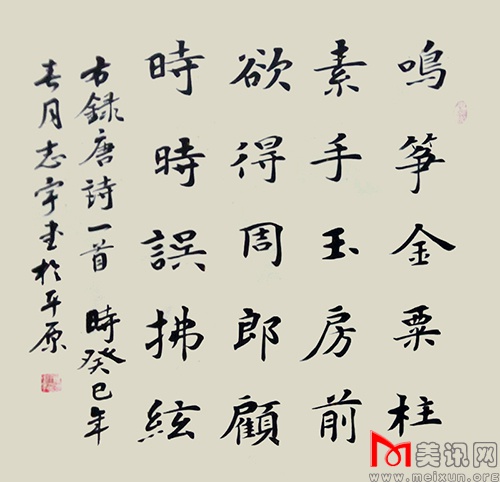 鳴筝金粟柱
素手玉房前
欲得周郎顧
時時誤拂絃
右録唐詩一首 時癸巳年
春月志宇书於平原
美讯网
www.meixun.org